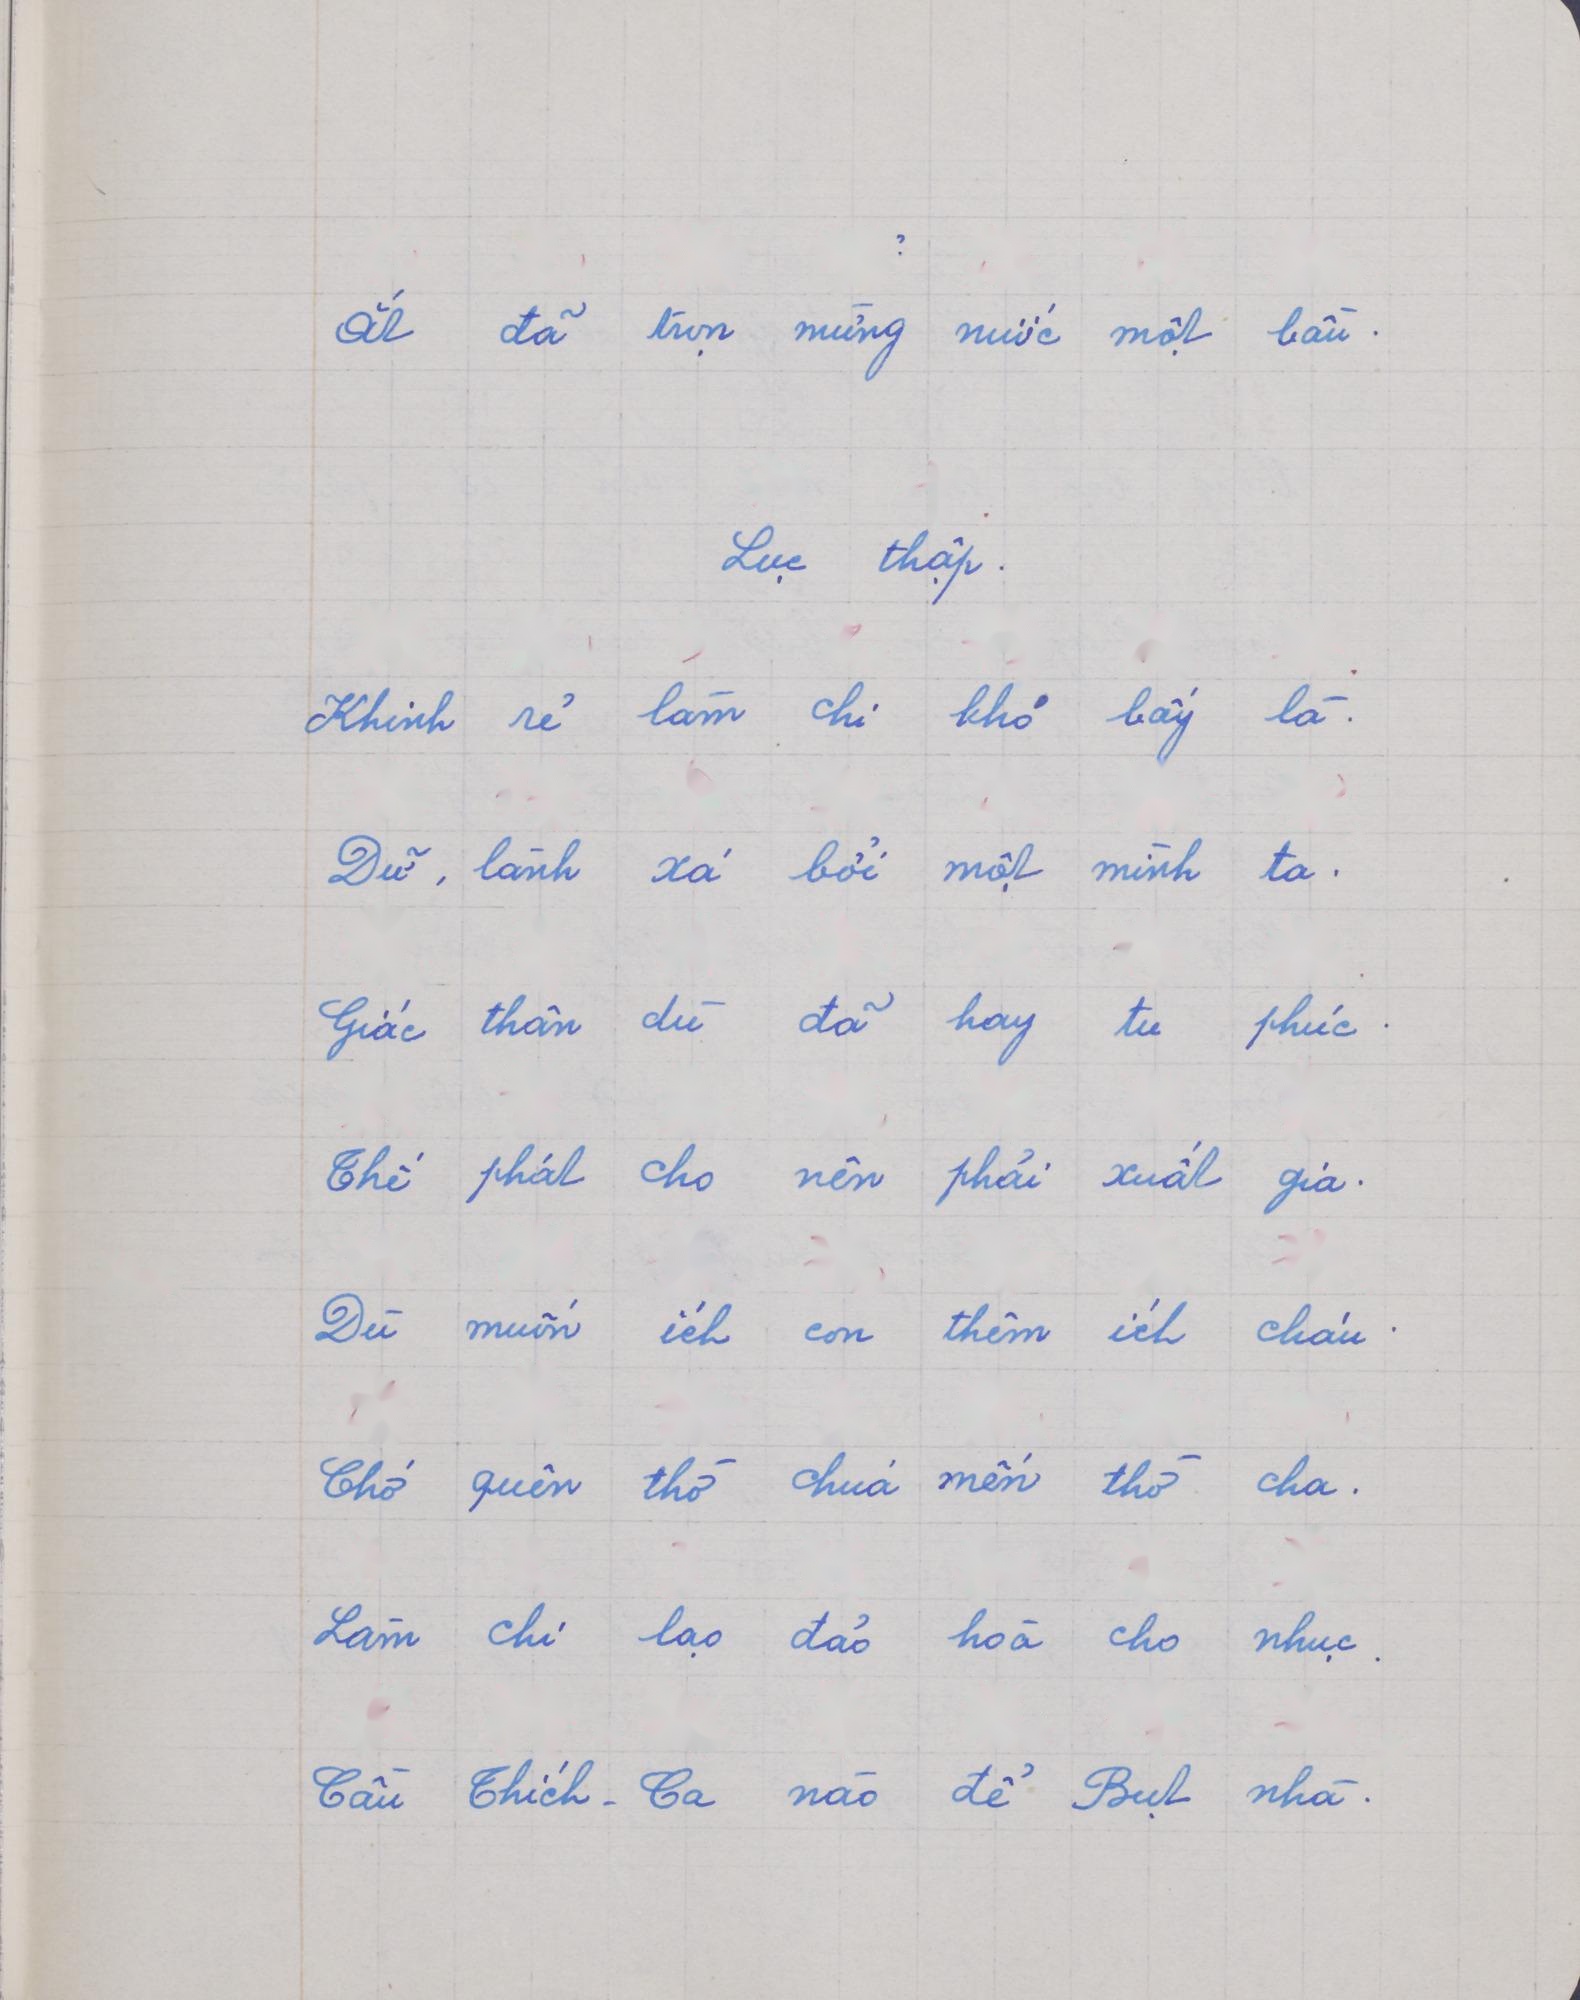 ?
Ắt đã trọn mừng nước một bầu.
Lục thập.
Khinh rẻ làm chi khỏ bấy là.
Dữ, lành xá bởi một mình ta.
Giác thân dù đã hay tu phúc.
Thế phát cho nên phải xuất gia.
Dù muốn ích con thêm ích cháu.
Chớ quên thờ chuá mến thờ cha.
Làm chi lạo đảo hoà cho nhục.
Cầu Thích-Ca nào để Bụt nhà.